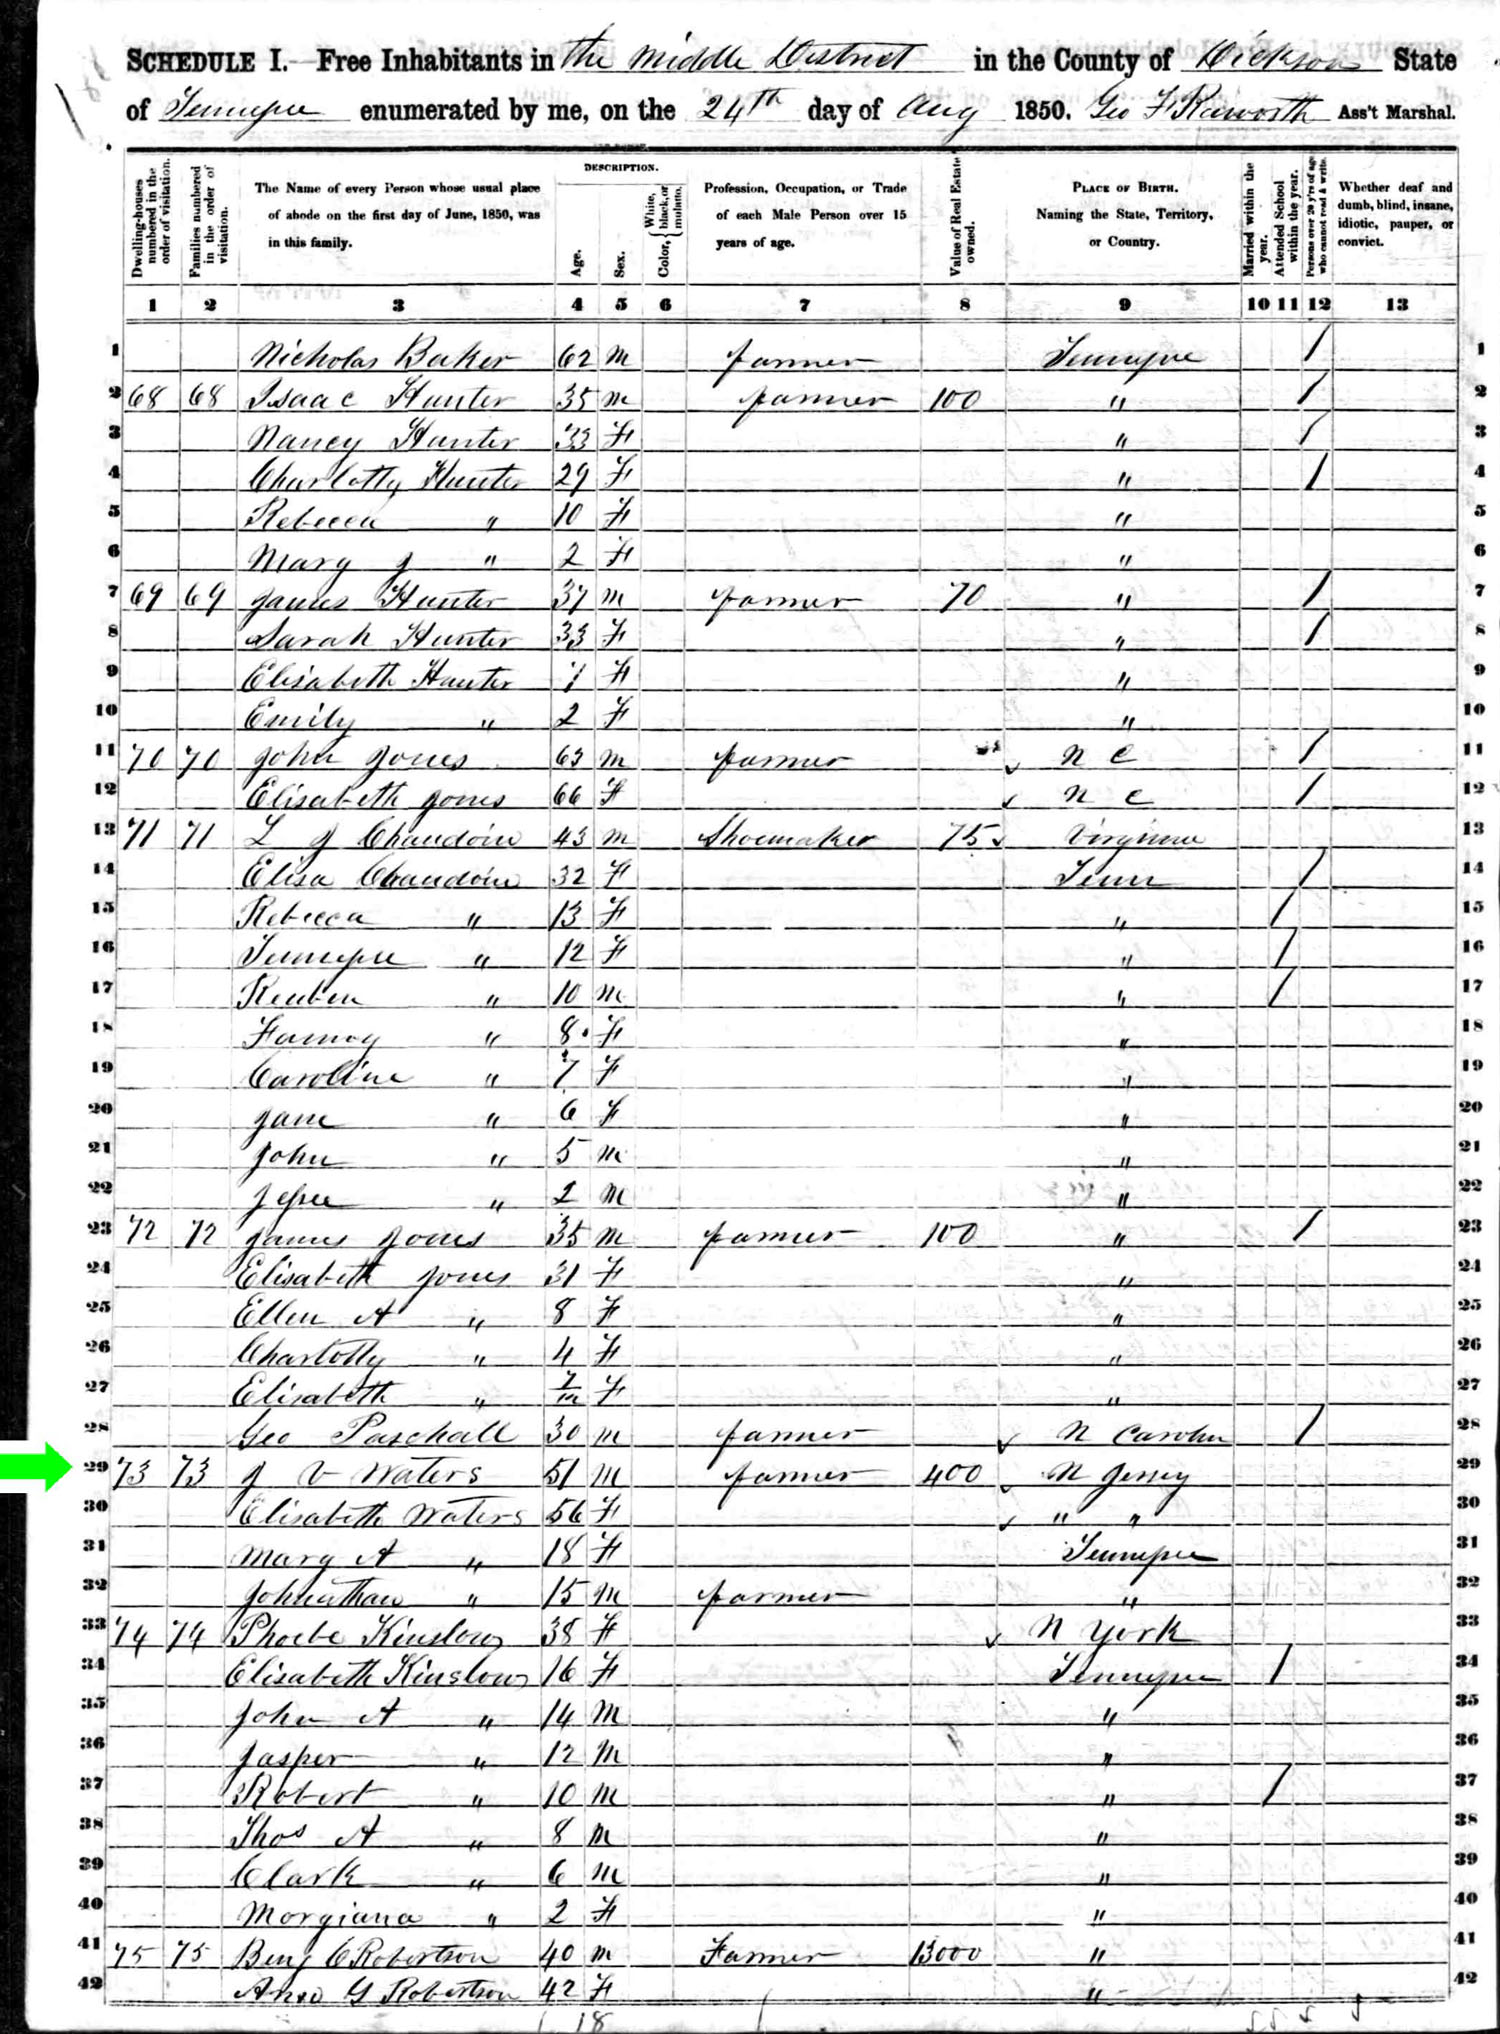 SCHEDULE I. Free Inhabitants in the Middle District in the County of Dickson State
of Tennessee enumerated by me, on the 24th day of Aug 1850. Geo F Raworth Ass't Marshal.
Dwelling-houses numbered in the order of visitation. Families numbered in the order of visitation. The Name of every Person whose usual place of abode on the first day of June, 1850, was in this family. DESCRIPTION. Age. Sex. Color, { White, black, or mulatto. Profession, Occupation, or Trade of each Male Person over 15 years of age. Value of Real Estate owned. PLACE OF BIRTH. Naming the State, Territory, or Country. Married within the year. Attended School within the year. Persons over 20 y'rs of age who cannot read & write. Whether deaf and dumb, blind, insane, idiotic, pauper, or convict.
1 2 3 4 5 6 7 8 9 10 11 12 13
1 Nicholas Baker 62 m farmer Tennessee / 1
2 68 68 Isaac Hunter 35 m farmer 100 " / 2
3 Nancy Hunter 33 F " / 3
4 Charlotty Hunter 29 F " / 4
5 Rebecca " 10 F " 5
6 Mary J " 2 F " 6
7 69 69 James Hunter 37 m farmer 70 " / 7
8 Sarah Hunter 33 F " / 8
9 Elisabeth Hunter F " 9
10 Emily " 2 F " 10
11 70 70 John Jones 63 m farmer N C / 11
12 Elisabeth Jones 66 F N C / 12
13 71 71 L J Chaudoin 43 m Shoemaker 75 Virginia 13
14 Elisa Chaudoin 32 F Tenn / 14
15 Rebecca " 13 F " / 15
16 Tennessee " 12 F " / 16
17 Reuben " 10 m " / 17
18 " 8 F " 18
19 Caroline " 7 F " 19
20 Jane " 6 F " 20
21 John " 5 m " 21
22 Jesse " 2 m " 22
23 72 72 James Jones 35 m farmer 100 " / 23
24 Elisabeth Jones 31 F " 24
25 Ellen A " 8 F " 25
26 Charlotty " 4 F " 26
27 Elisabeth " 7/12 F " 27
28 Geo Paschall 30 m farmer N Carolin / 28
29 73 73 J V Waters 51 m farmer 400 N Jersey 29
30 Elisabeth Waters 56 F " " 30
31 Mary A " 18 F Tennessee 31
32 Johnathan " 15 m farmer " 32
33 74 74 Phoebe Kinslow 38 F N York 33
34 Elisabeth Kinslow 16 F Tennessee / 34
35 John A " 14 m " 35
36 Jasper " 12 m " 36
37 Robert " 10 m " / 37
38 Thos A " 8 m " 38
39 Clark " 6 m " 39
40 Morgiana " 2 F " 40
41 75 75 Benj C Robertson 40 m Farmer 13000 " 41
42 G Robertson 42 F " 42
18